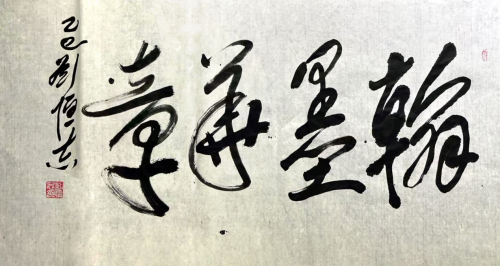 翰墨華章
乙巳劉恒志